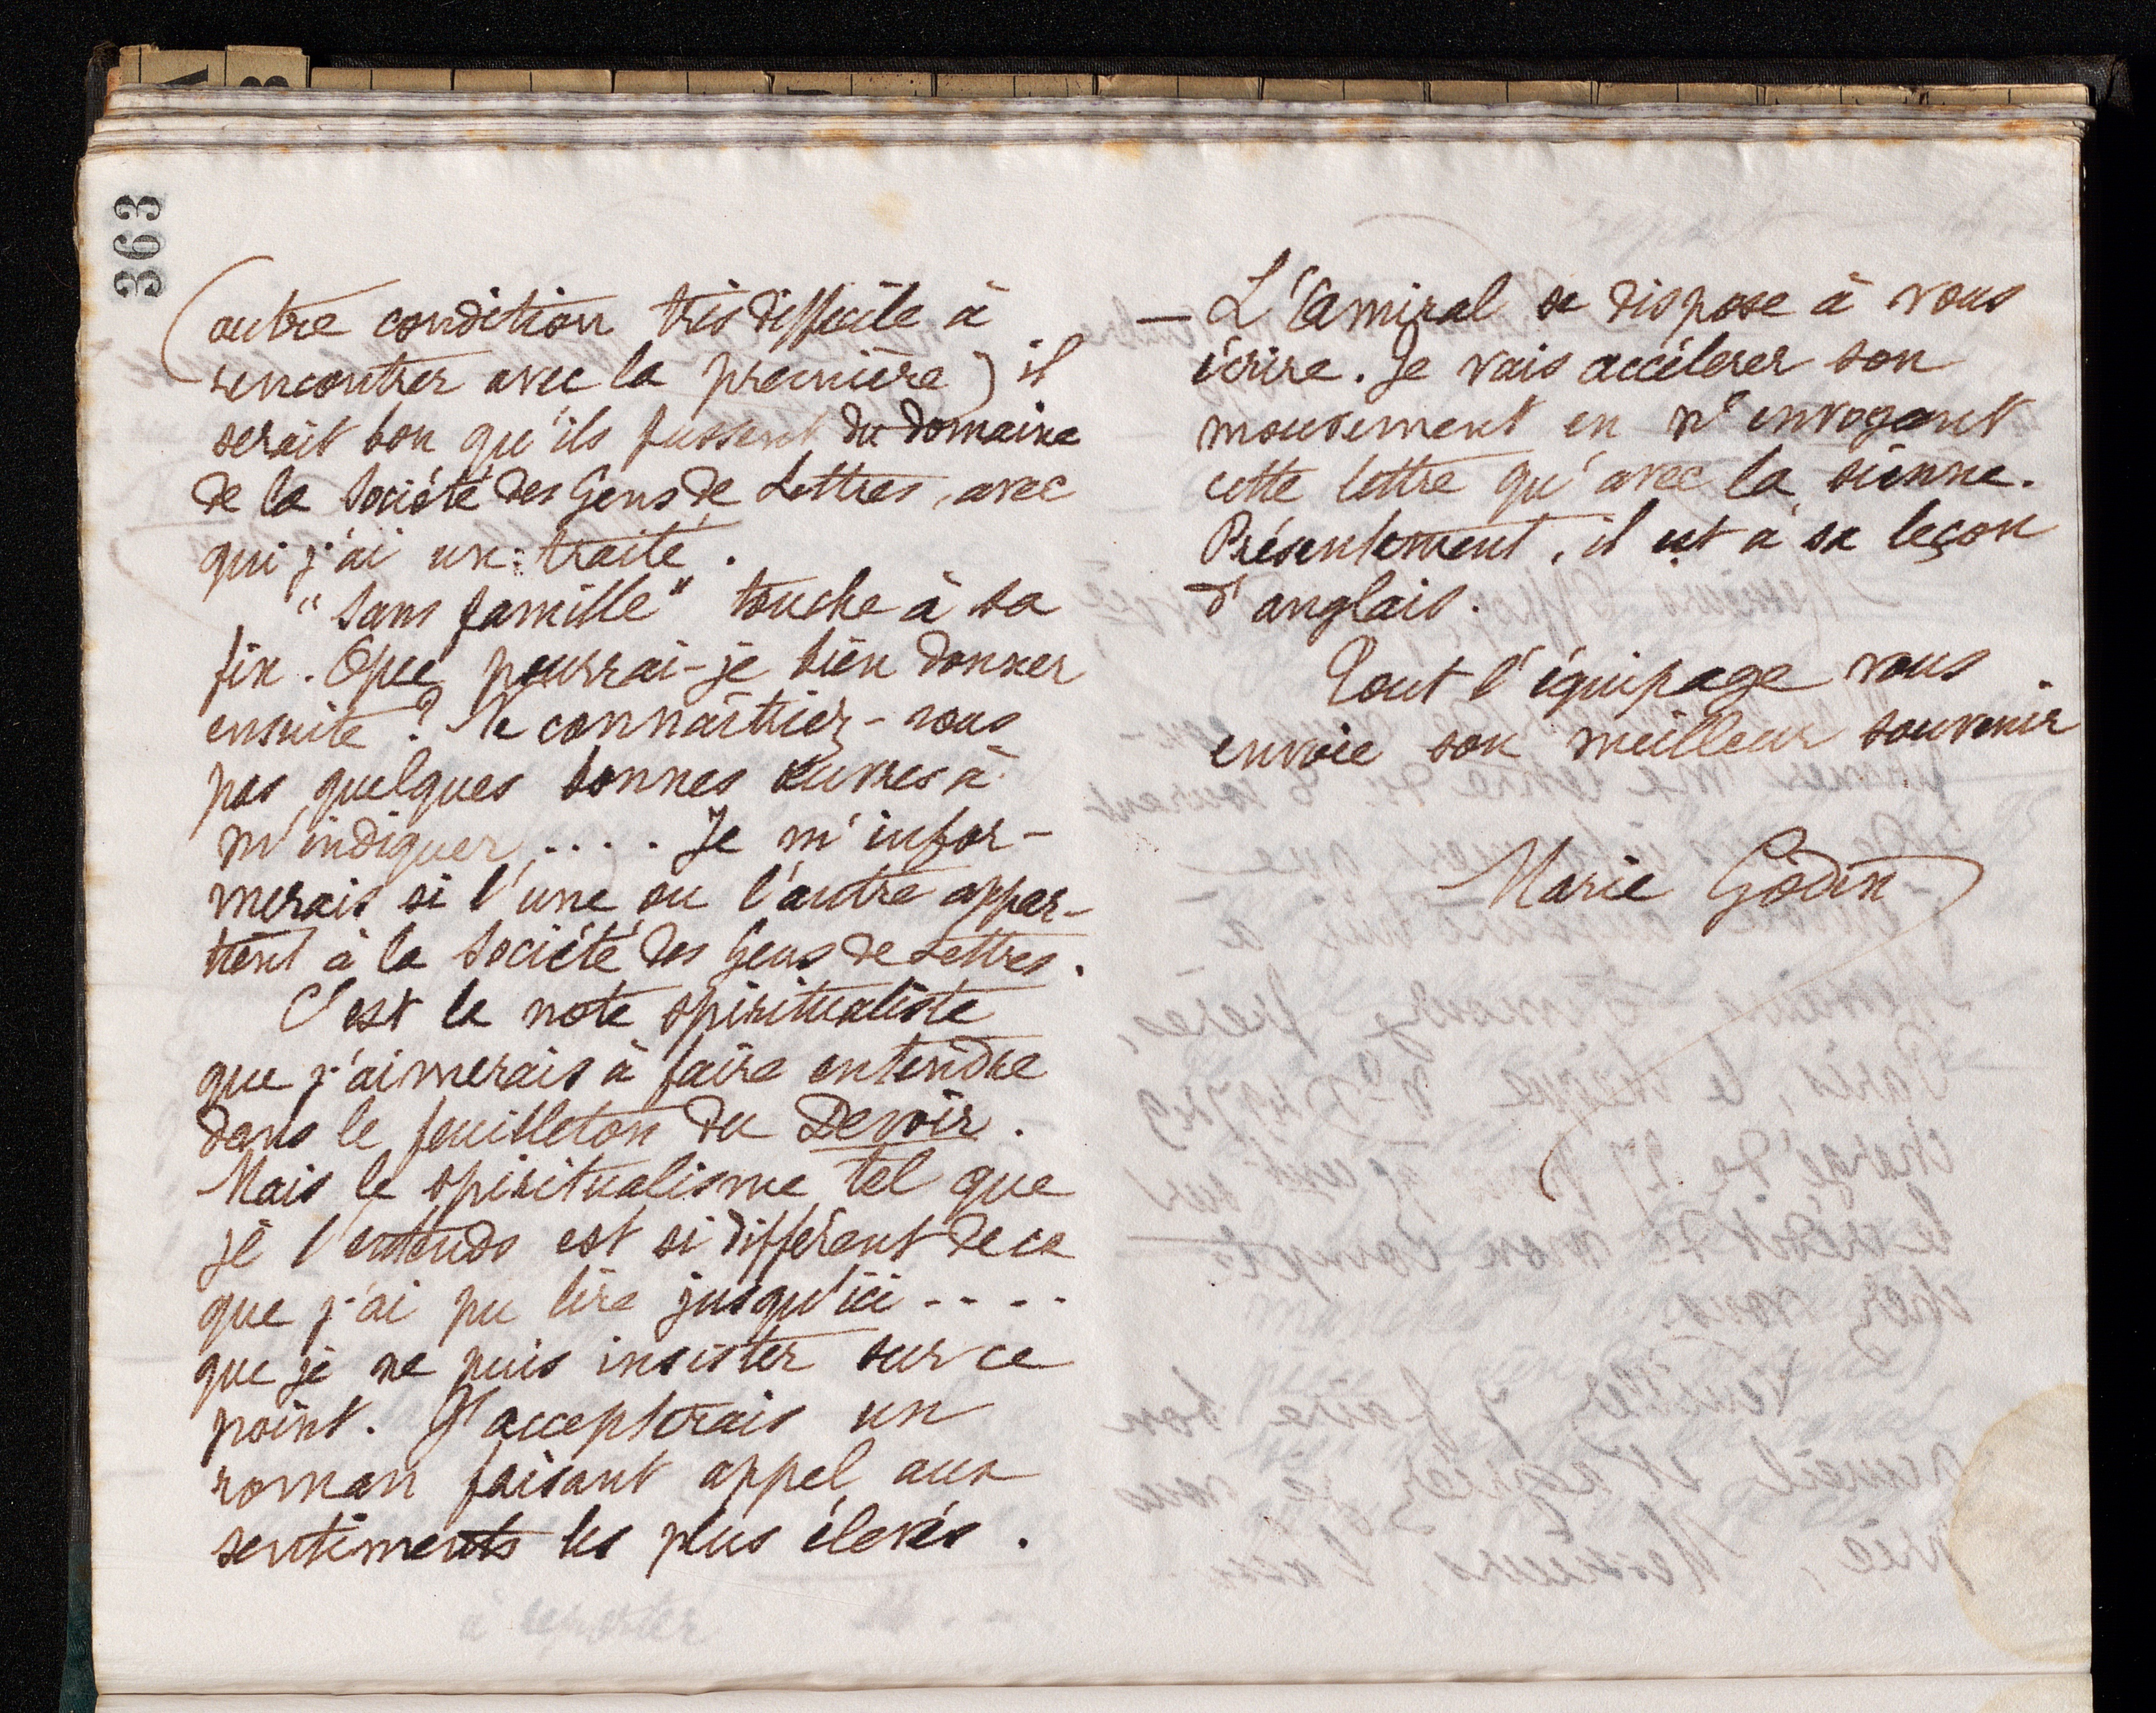 363
(autre condition très difficile à
rencontrer avec la première) il
serait bon qu'ils fussent du domaine
de la Société des Gens de Lettres, avec
qui j'ai un traité.
"Sans famille" touche à sa
fin. Que pourrai-je bien donner
ensuite ? Ne connaîtriez-vous
pas quelques bonnes œuvres à
m'indiquer .... Je m'infor-
merais si l'une ou l'autre appar-
tient à la Société des Gens de Lettres.
C'est la note spiritualiste
que j'aimerais à faire entendre
dans le feuilleton du Devoir.
Mais le spiritualisme tel que
je l'entends est si différent de ce
que j'ai pu lire jusqu'ici ....
que je ne puis insister sur ce
point. J'accepterais un
roman faisant appel aux
sentiments les plus élevés.
— L'Amiral se dispose à vous
écrire. Je vais accélérer son
mouvement en n'envoyant
cette lettre qu'avec la sienne.
Présentement, il est à sa leçon
d'anglais.
Tout l'équipage vous
envoie son meilleur souvenir
Marie Godin